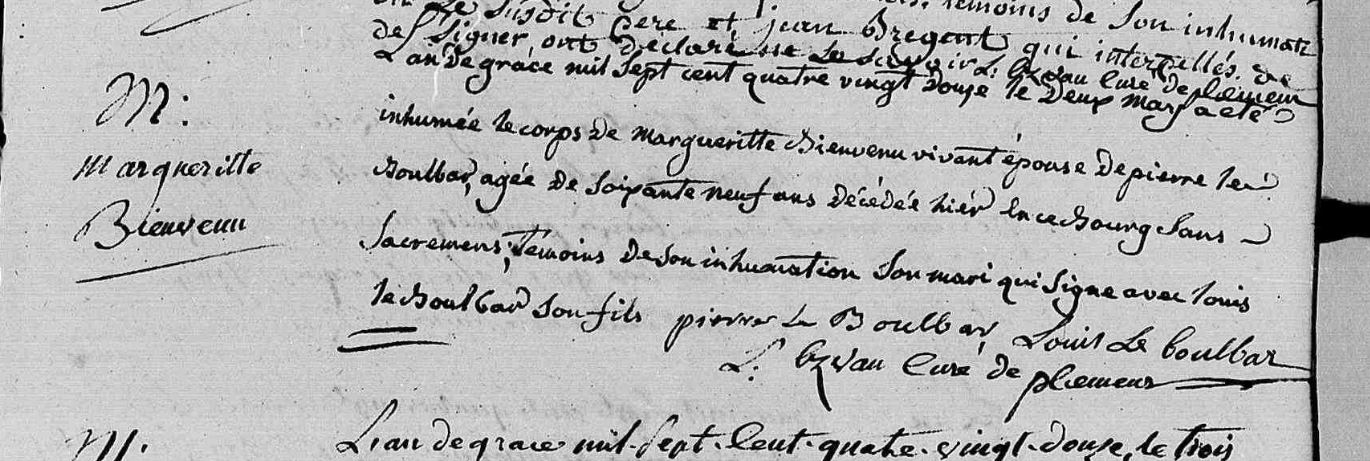 le susdit pere et jean Bregent témoins de son inhumat:
qui interpellés de
de signer, ont declaré ne le savoir L: curé de ploemeur
L'an de grace mil sept cent quatre vingt douze le deux mars a eté
M:
inhumée le corps de margueritte Bienvenu vivant épouse de pierre le
margueritte
Boulbar, agée de soixante neuf ans décédée hiér en ce bourg sans
Bienvenu
sacremens, temoins de son inhumation son mari qui signe avec louis
le Boulbar son fils pierre Le Boulbar Louis Le boulbar
L: curé de ploemeur
M.
L'an de grace mil sept cent quatre vingt douze, le trois